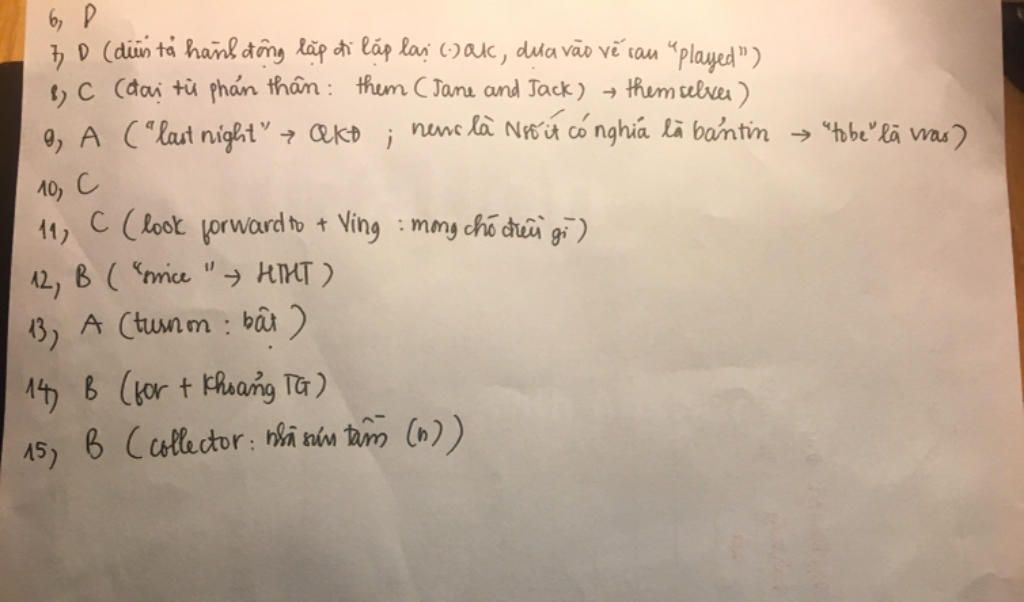 6, D
7, D (diễn tả hành động lặp đi lặp lại (.) QK, dựa vào vế sau "played")
8, C (đại từ phản thân: them (Jane and Jack) → themselves)
9, A ("last night" → QKĐ; news là N số ít có nghĩa là bản tin → "tobe" là was)
10, C
11, C (look forward to + Ving: mong chờ điều gì)
12, B ("since" → HTHT)
13, A (turn on: bật)
14, B (for + khoảng TG)
15, B (collector: nhà sưu tầm (n))